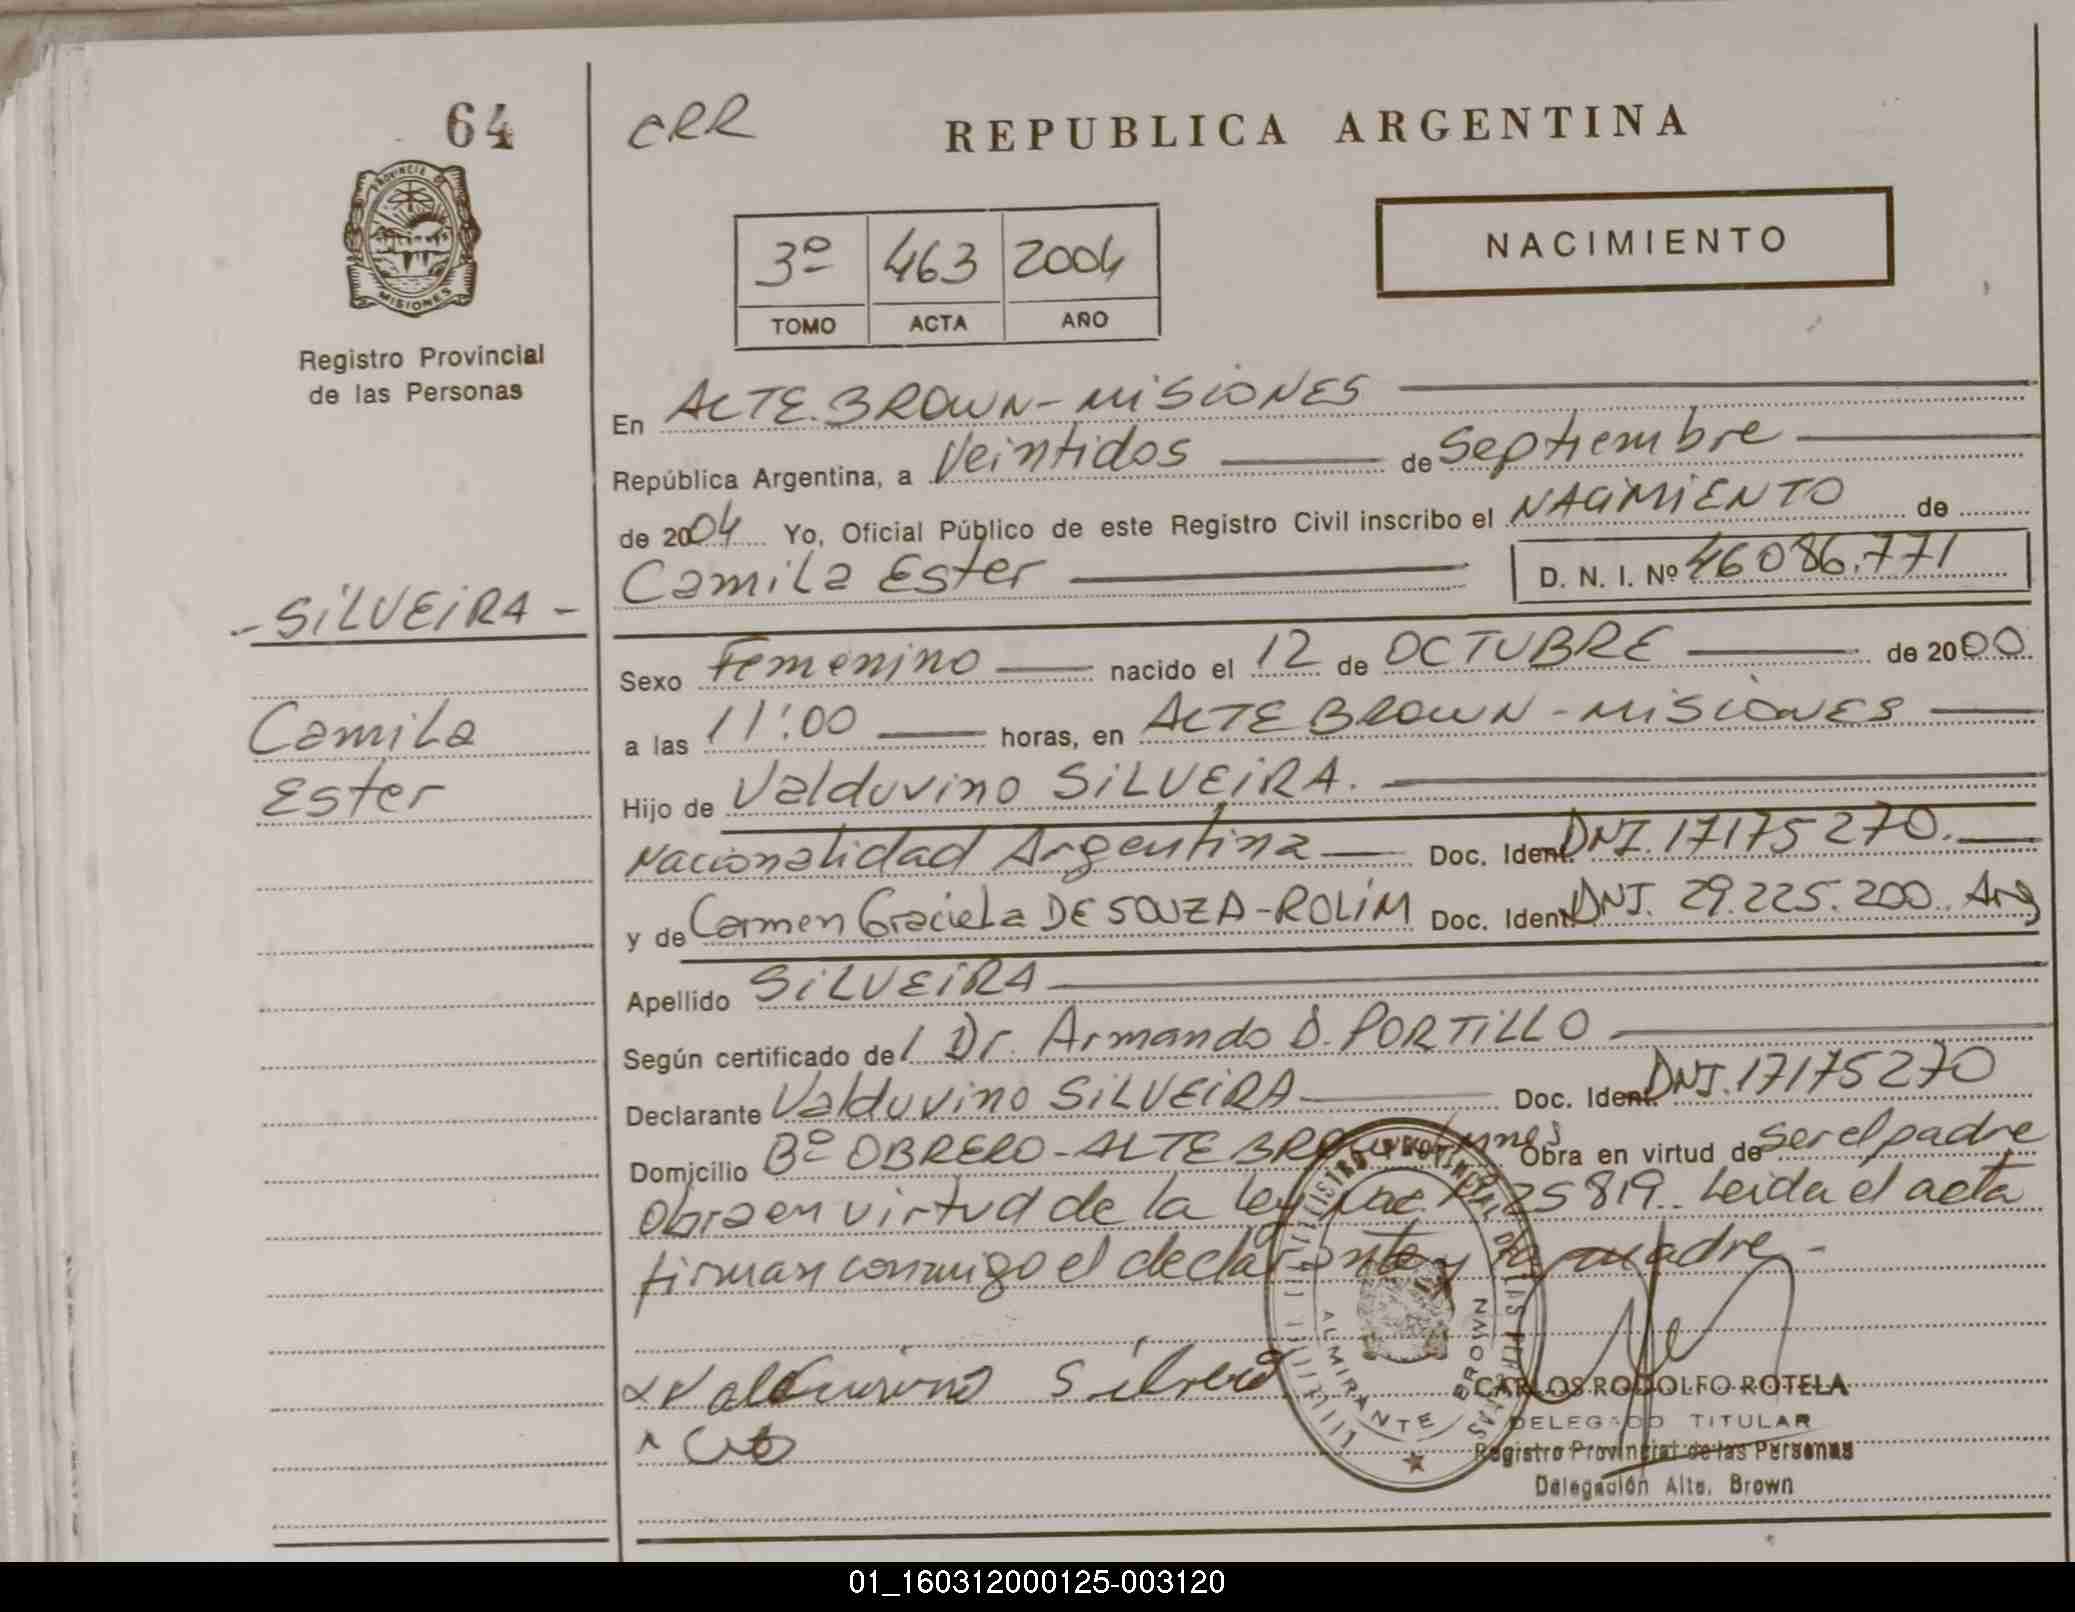 64
CRR
REPUBLICA ARGENTINA
PROVINCIA DE
MISIONES
Registro Provincial
de las Personas
3º 463 2004
TOMO ACTA AÑO
NACIMIENTO
En ALTE. BROWN - MISIONES
República Argentina, a Veintidos de Septiembre
de 2004 Yo, Oficial Público de este Registro Civil inscribo el NACIMIENTO de
Camila Ester D. N. I. Nº 46086.771
- SILVEIRA -
Camila
Ester
Sexo Femenino nacido el 12 de OCTUBRE de 2000
a las 11:00 horas, en ALTE BROWN - MISIONES
Hijo de Valduvino SILVEIRA.
Nacionalidad Argentina Doc. Ident. DNI. 17175270.
y de Carmen Graciela DE SOUZA - ROLIM Doc. Ident. DNI. 29.225.200. Arg
Apellido SILVEIRA
Según certificado del Dr. Armando D. PORTILLO
Declarante Valduvino SILVEIRA Doc. Ident. DNI. 17175270
Domicilio Bº OBRERO - ALTE BROWN Obra en virtud de ser el padre
Obra en virtud de la Ley Nac. Nº 25819. Leida el acta
firman conmigo el declarante y la madre -
Valduvino Silveira
ALMIRANTE BROWN
CARLOS RODOLFO ROTELA
DELEGADO TITULAR
Registro Provincial de las Personas
Delegación Alte. Brown
01_160312000125-003120